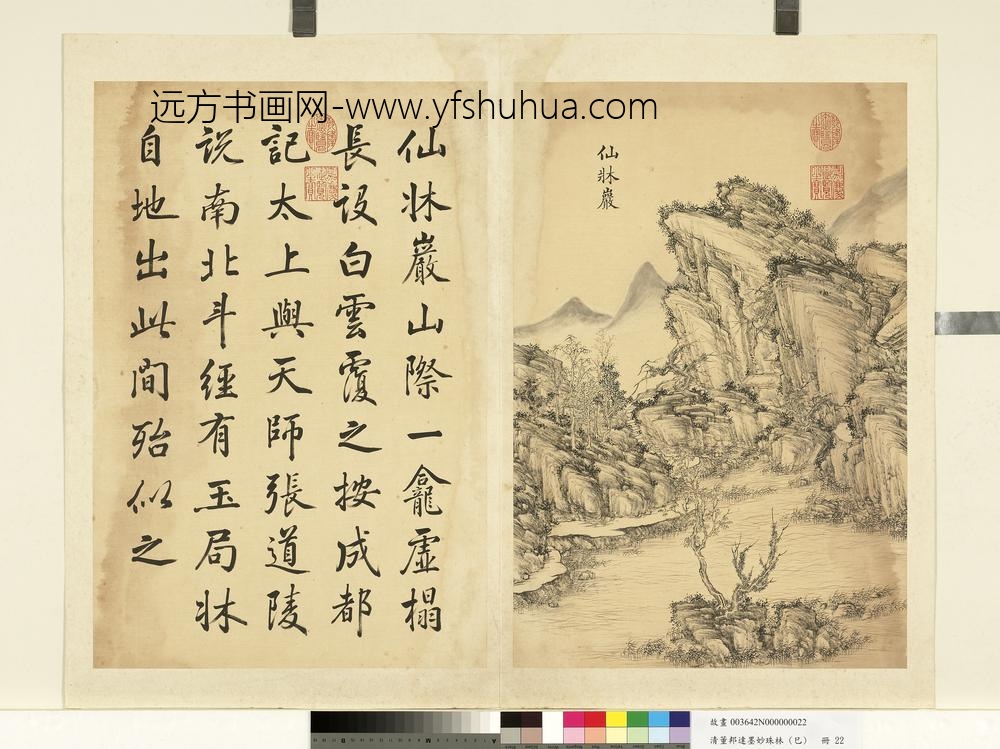 远方书画网-www.yfshuhua.com
仙牀巖
仙牀巖山際一龕虛榻
長設白雲覆之按成都
記太上與天師張道陵
說南北斗經有玉局牀
自地出此間殆似之
故畫 003642N000000022
清董邦達墨妙珠林（巳） 冊 22